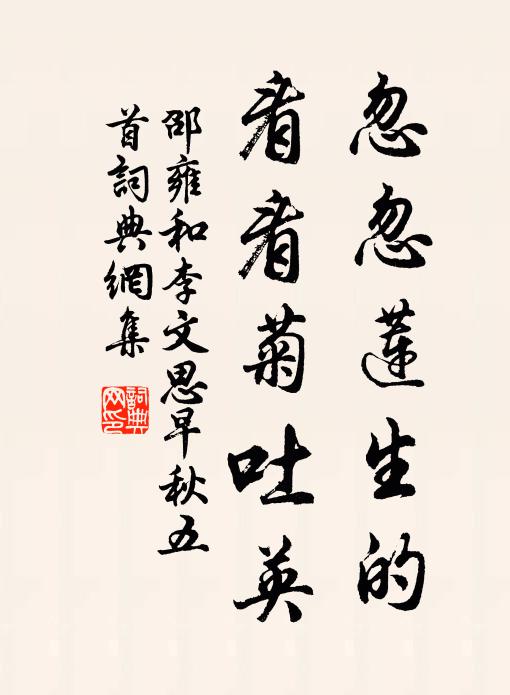 忽忽蓮生的
看看菊吐英
邵雍和李文思早秋五
首詞典網集
詞典网印